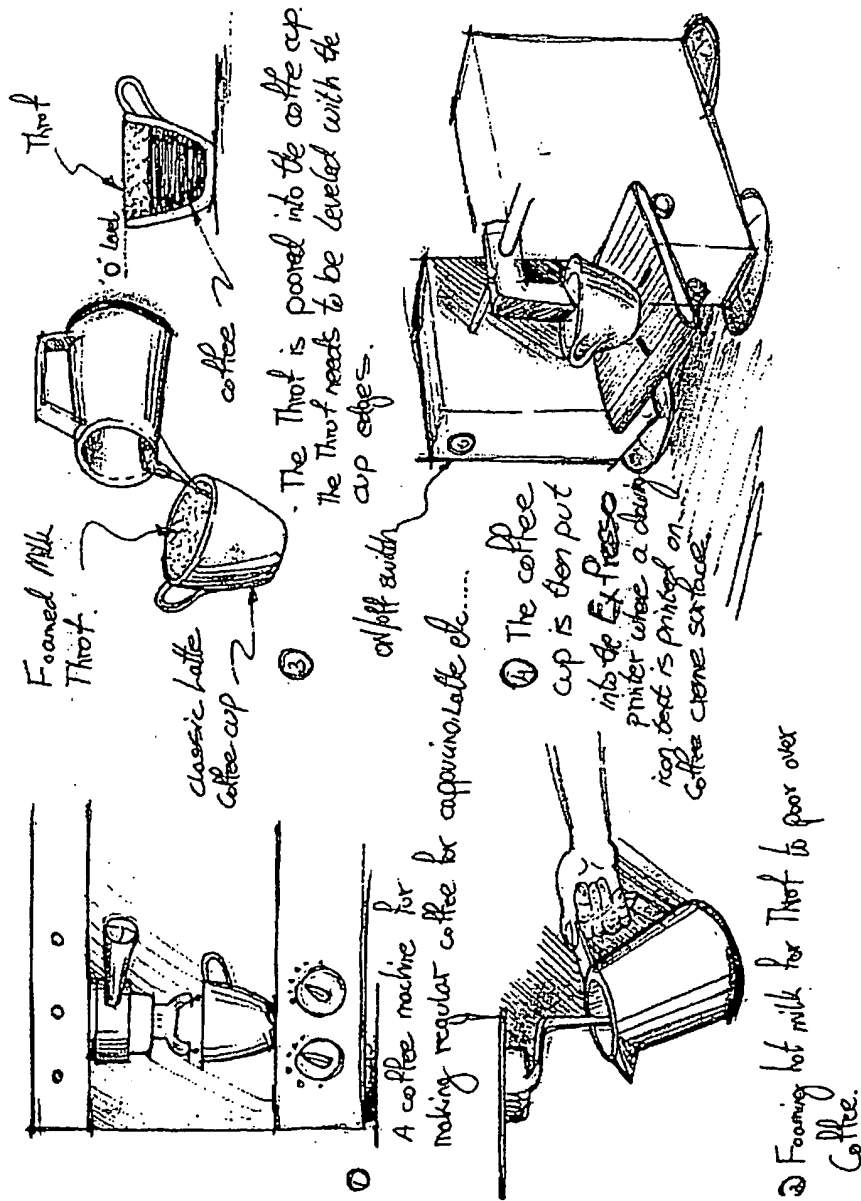 ①
A coffee machine for
making regular coffee for cappucino, Latte etc.....
② Foaming hot milk for Throt to poor over
Coffee.
Foamed Milk
Throt.
classic Latte
Coffee cup
③
"O" Level
Throt
coffee
. The Throt is poored into the coffee cup.
the Throt needs to be leveled with the
cup edges.
on/off switch
④ The coffee
cup is then put
into the EXPresso
printer where a
icon. text is printed on
Coffee creme surface